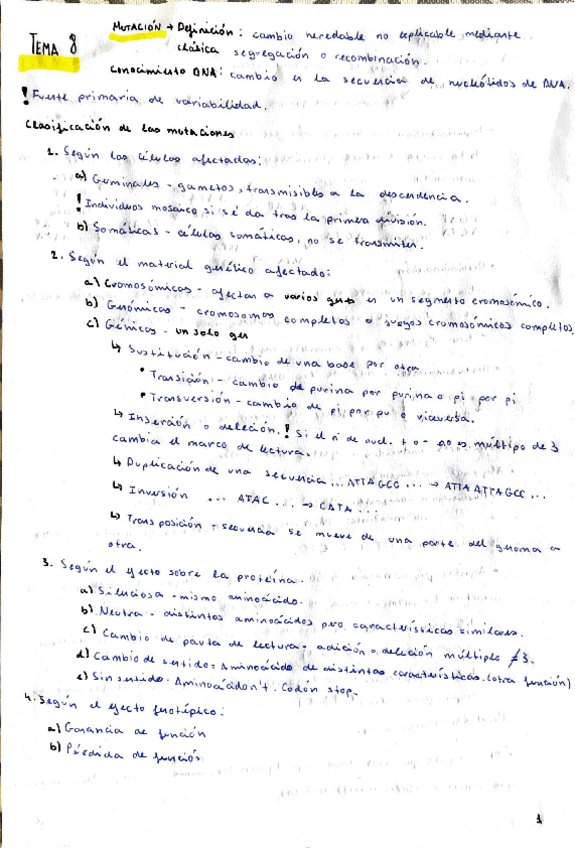 TEMA 8
MUTACIÓN → Definición: cambio heredable no explicable mediante
clásica segregación o recombinación.
Conocimiento DNA: cambio en la secuencia de nucleótidos de DNA.
! Fuente primaria de variabilidad.
Clasificación de las mutaciones
1. Según las células afectadas:
a) Germinales - gametos, transmisibles a la descendencia.
! Individuos mosaico si se da tras la primera división.
b) Somáticas - células somáticas, no se transmiten.
2. Según el material genético afectado:
a) Cromosómicas - afectan a varios gens en un segmento cromosómico.
b) Genómicas - cromosomas completos o juegos cromosómicos completos.
c) Génicas - un solo gen
↳ Sustitución - cambio de una base por otra
• Transición - cambio de purina por purina o pi por pi
• Transversión - cambio de pi por pu o viceversa.
↳ Inserción o deleción. ! Si el nº de nucl. + o - no es múltipo de 3
cambia el marco de lectura.
↳ Duplicación de una secuencia ... ATTAGCC ... → ATTAATTAGCC ...
↳ Inversión ... ATAC ... → CATA ...
↳ Transposición - secuencia se mueve de una parte del genoma a
otra.
3. Según el efecto sobre la proteína.
a) Silenciosa - mismo aminoácido.
b) Neutra - distintos aminoácidos pero características similares.
c) Cambio de pauta de lectura - adición o deleción múltiple ≠ 3.
d) Cambio de sentido - Aminoácido de distintas características. (otra función)
e) Sin sentido - Aminoácidon't. Codón stop.
4. Según el efecto fenotípico:
a) Ganancia de función
b) Pérdida de función
1